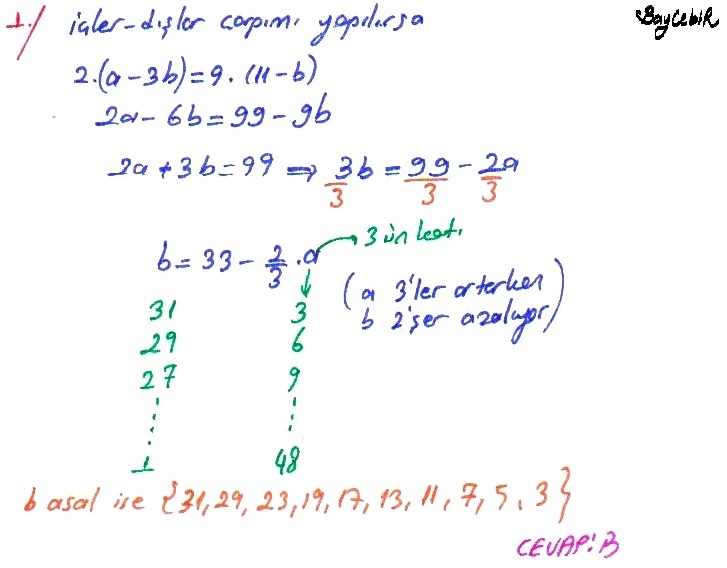 1./ içler-dışlar çarpımı yapılırsa
BayCebiR
2.(a-3b)=9.(11-b)
2a-6b=99-9b
2a+3b=99 ⇒ 3b/3 = 99/3 - 2a/3
b=33-2/3.a → 3 ün katı
31 3 (a 3'ler artarken
29 6 b 2'şer azalıyor)
27 9
⋮ ⋮
1 48
b asal ise {31,29,23,19,17,13,11,7,5,3}
CEVAP:B